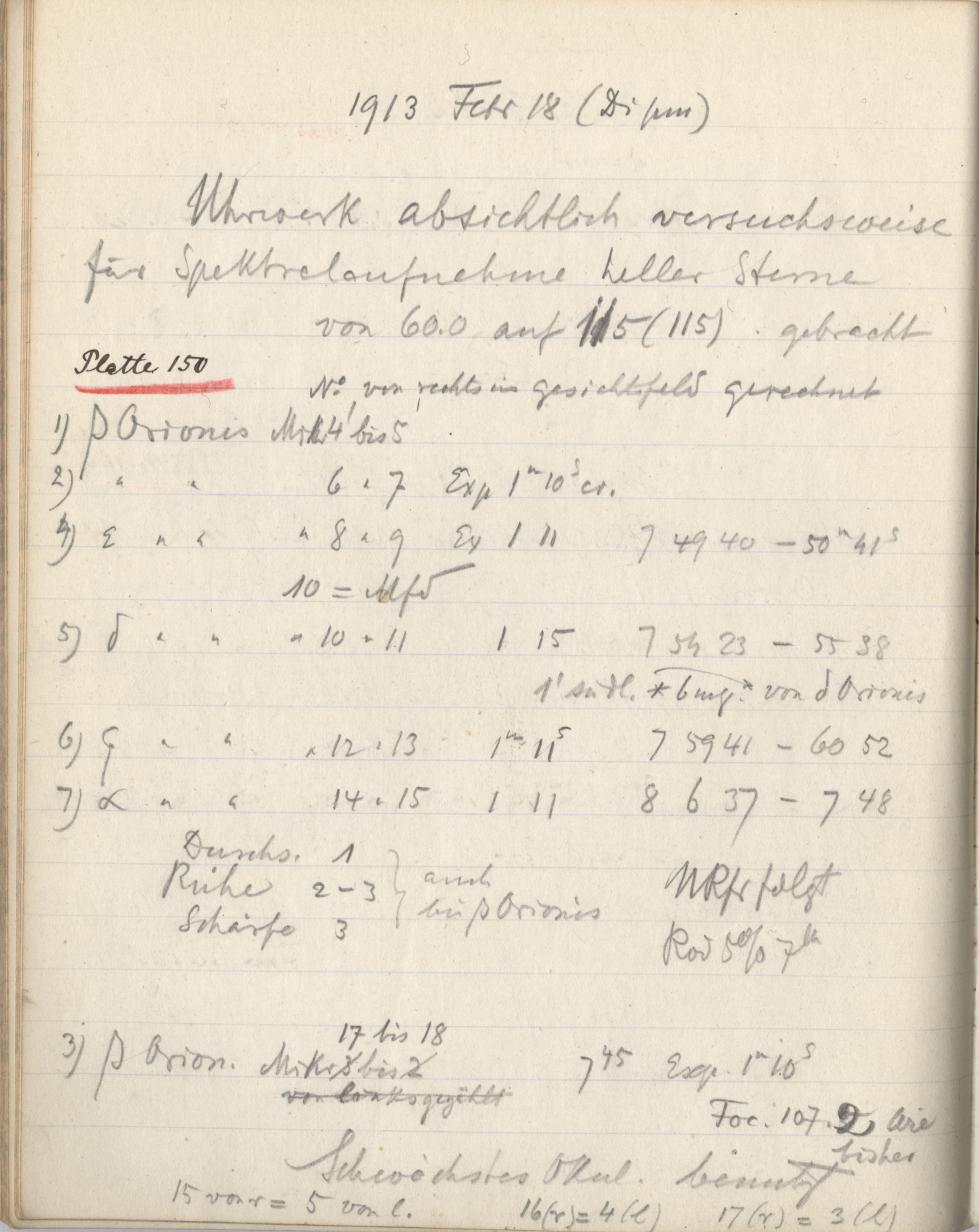 1913 Febr 18 (Di pm)
Uhrwerk absichtlich versuchsweise
für Spektralaufnahme heller Sterne
von 60.0 auf 115 (115) . gebracht
Platte 150
No von rechts im Gesichtsfeld gerechnet
1) β Orionis Mikr 4 bis 5
2) " " 6 " 7 Exp 1m 10s ca.
4) ε " " " 8 " 9 Ex 1 11 7 49 40 – 50m 41s
10 = Mfd
5) δ " " " 10 " 11 1 15 7 54 23 – 55 38
1' südl. * 6 mg. * von δ Orionis
6) ζ " " " 12 " 13 1m 11s 7 59 41 – 60 52
7) α " " 14 " 15 1 11 8 6 37 – 7 48
Durchs. 1
Ruhe 2–3 } auch
bei β Orionis
Schärfe 3
folgt
5% 7h
17 bis 18
3) β Orion. Mikr 3 bis 2 7 45 Exp. 1m 10s
von links gezählt
Foc. 107.2 wie
bisher
Schwächstes Okul. benutzt
15 von r = 5 von l. 16(r) = 4(l) 17(r) = 3(l)